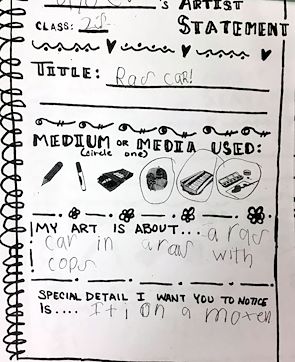 's ARTIST
CLASS: STATEMENT
TITLE: Ras car!
MEDIUM OR MEDIA USED:
(circle one)
MY ART IS ABOUT... a ras
car in a ras with
cops
SPECIAL DETAIL I WANT YOU TO NOTICE
IS.... It i on a